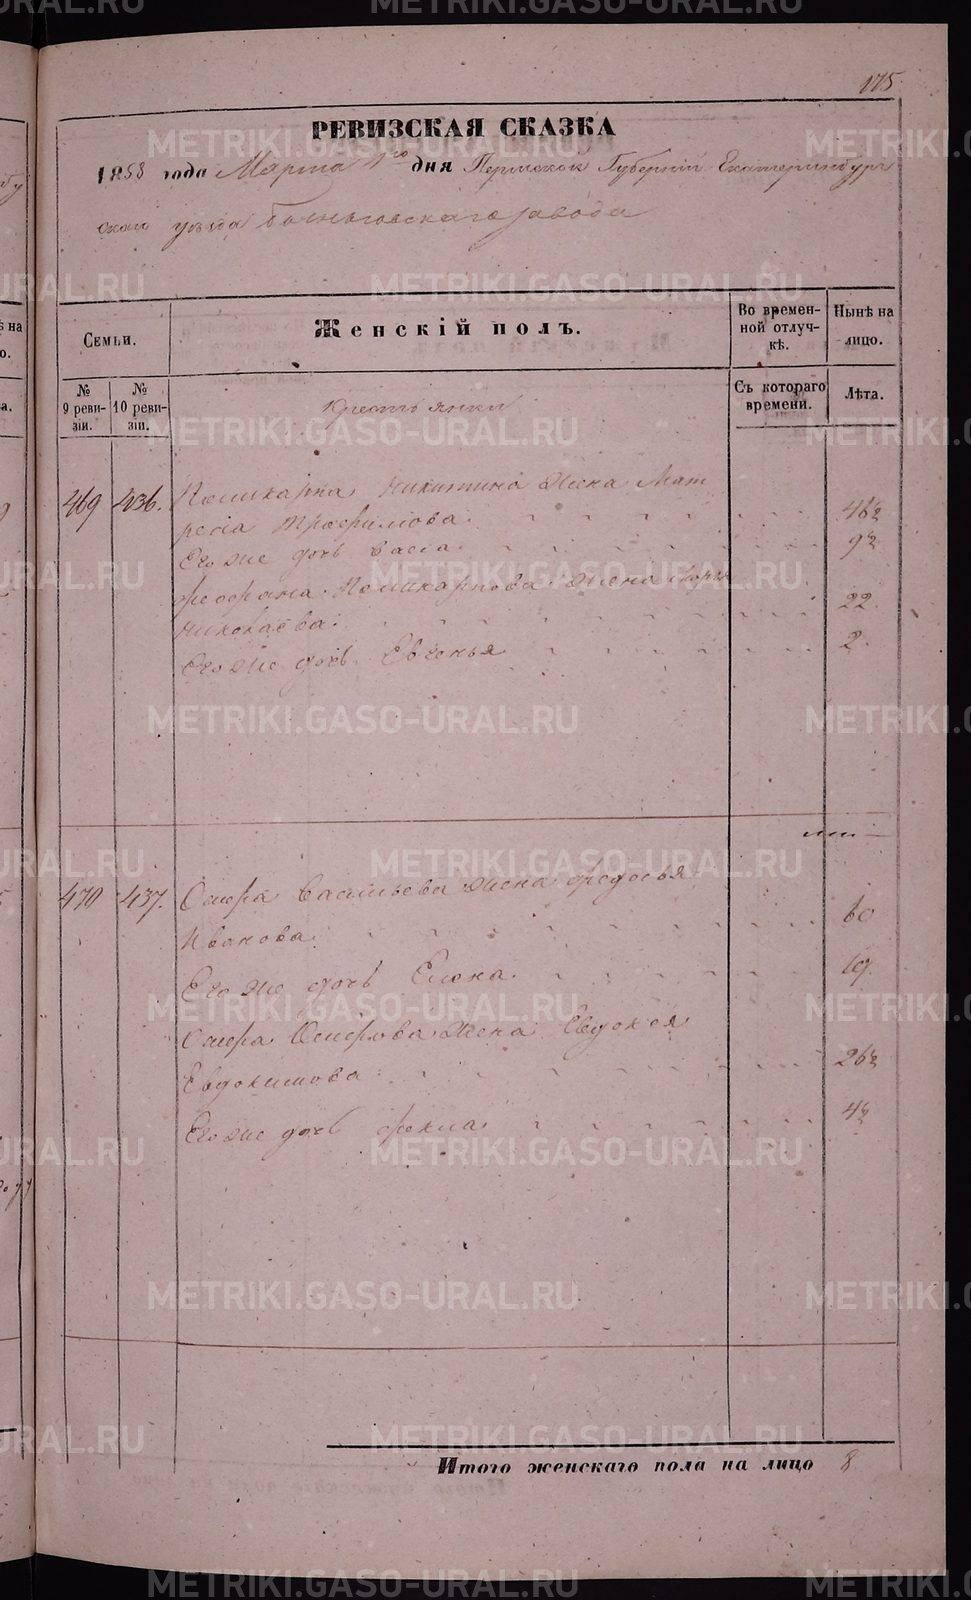 175
РЕВИЗСКАЯ СКАЗКА
1858 года Марта 1го дня Пермской Губернии Екатеринбург
скаго уезда завода
Семьи.
Женскій полъ.
Во времен-
ной отлуч-
кѣ.
Нынѣ на
лицо.
№
9 реви-
зіи.
№
10 реви-
зіи.
Съ котораго
времени.
Лѣта.
Крестьянки
469 436. Поликарпа Никитина жена Мат
рена Трофимова 46½
Его же дочь Васса 9½
Феофана Поликарпова жена
Николаева 22.
Его же дочь Евгенья 2.
470 437. Сидора Васильева жена Федосья
Иванова 60
Его же дочь Елена 19.
жена Евдокея
Евдокимова 26½
Его же дочь Фекла 4½
Итого женскаго пола на лицо 8
METRIKI.GASO-URAL.RU